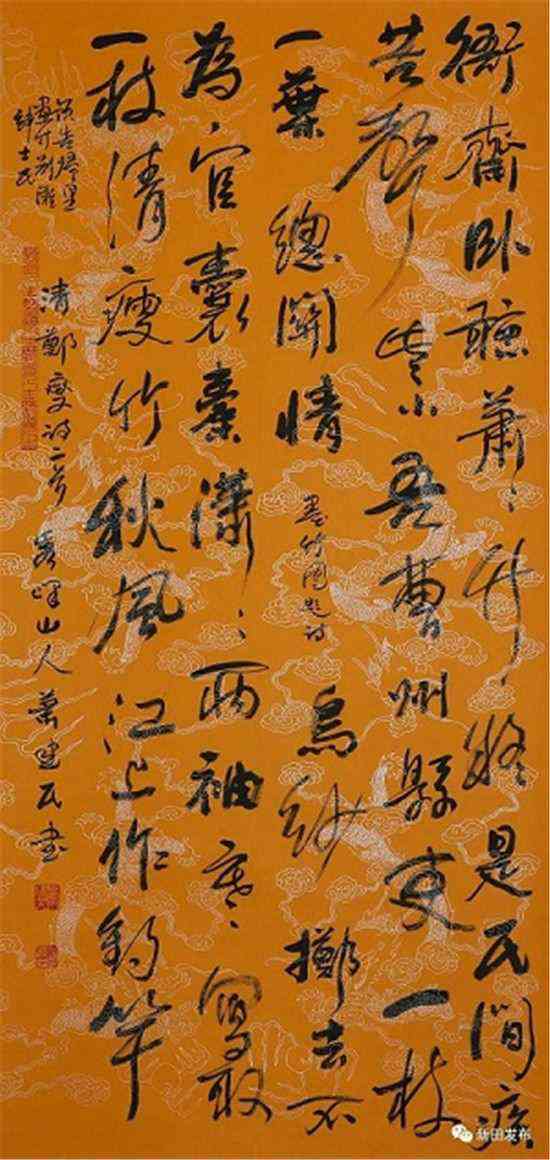 衙齋卧聽蕭〻竹疑是民間疾
苦聲些小吾曹州縣吏一枝
一葉總關情 墨竹圖題詩 烏紗擲去不
為官囊橐瀟〻兩袖寒〻寫取
一枝清瘦竹秋風江上作釣竿
予告歸里
畫竹別濰
縣士民
清鄭燮詩二首 山人 書
新田发布